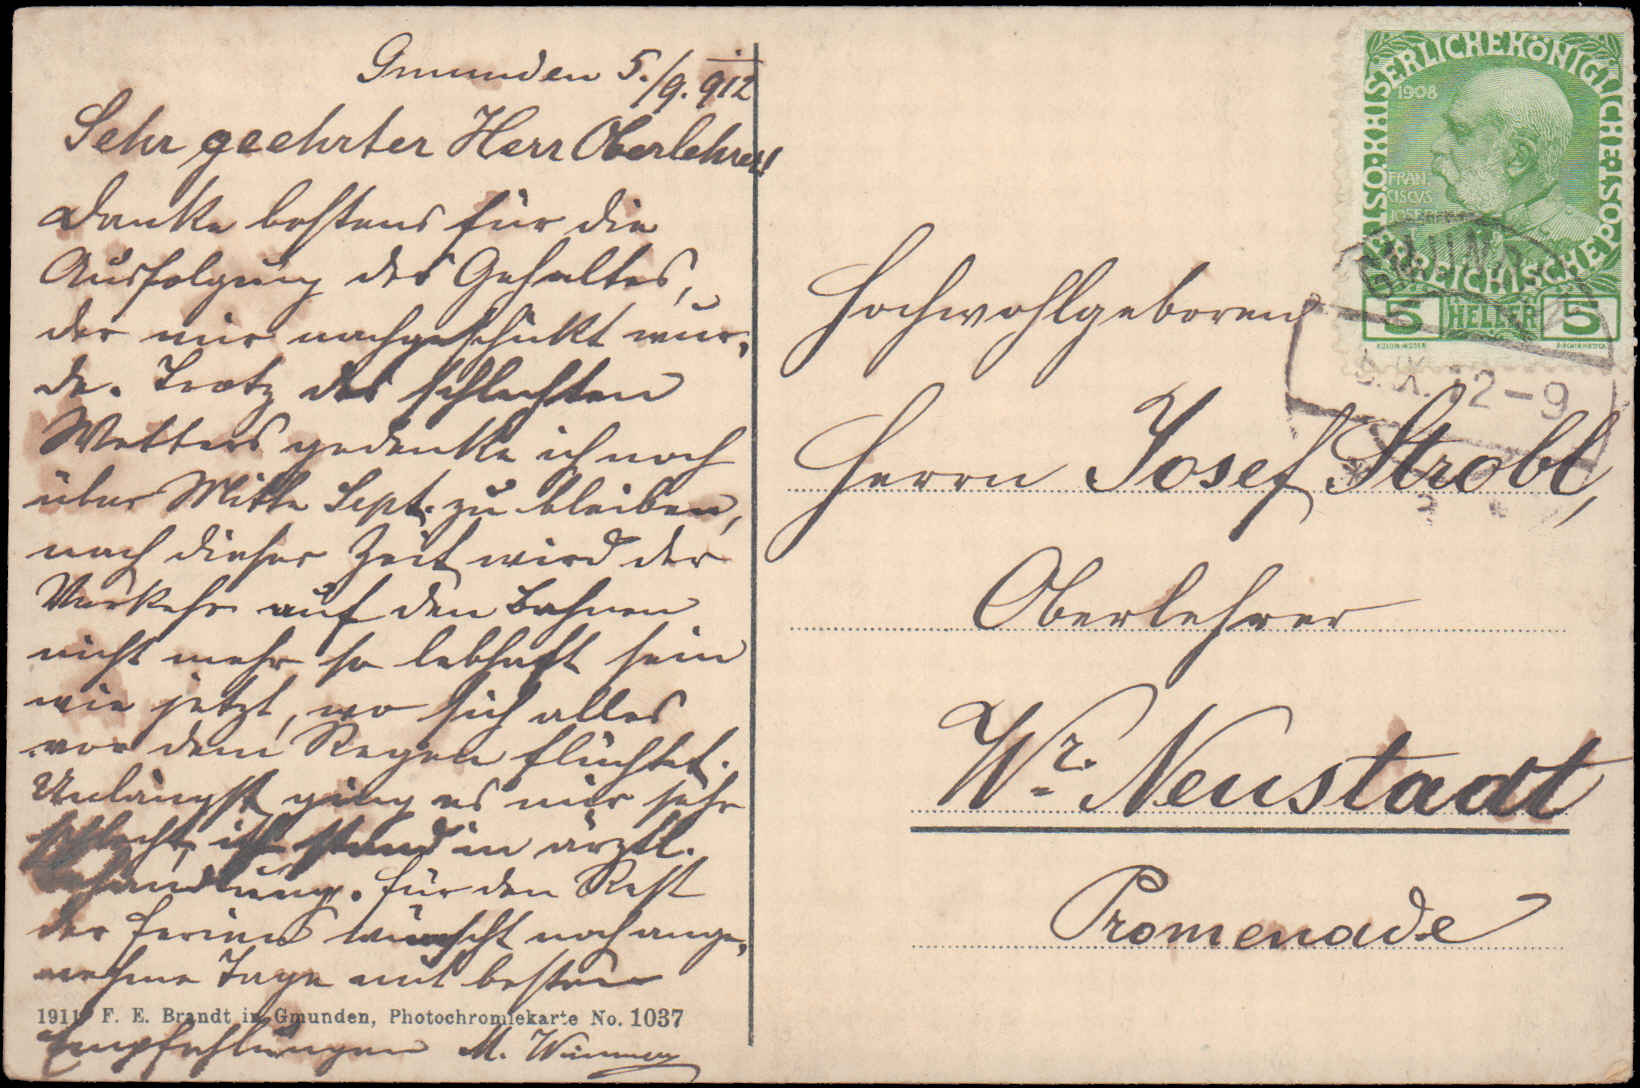 Gmunden 5./9. 912
Sehr geehrter Herr Oberlehrer!
Danke bestens für die
Ausfolgung des Gehaltes,
der mir nachgeschickt wur-
de. Trotz des schlechten
Wetters gedenke ich noch
über Mitte Sept. zu bleiben,
nach dieser Zeit wird der
Verkehr auf den Bahnen
nicht mehr so lebhaft sein
wie jetzt, wo sich alles
vor dem Regen flüchtet.
Unlängst ging es mir sehr
schlecht, ich stand in ärztl.
Behandlung. Für den Rest
der Ferien wünscht noch ange-
nehme Tage mit besten
1911 F. E. Brandt in Gmunden, Photochromiekarte No. 1037
Empfehlungen M.
KAISERLICHE KÖNIGLICHE ÖSTERREICHISCHE POST
1908
FRAN
CISCVS
JOSEPH
5 HELLER 5
GMUNDEN
5. IX. 12-9
Hochwohlgeboren
Herrn Josef Strobl,
Oberlehrer
Wr. Neustadt
Promenade